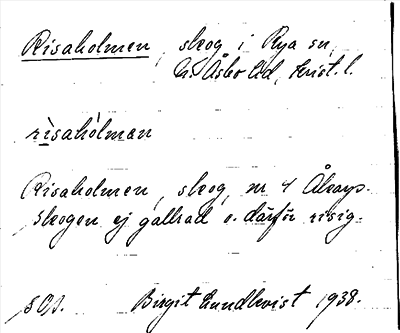 Risaholmen, skog i Rya sn,
N. Åsbo hd, Krist. l.
rìsahólman
Risaholmen, skog, nr 4
Skogen ej gallrad o. därför risig.
Birgit Lundkvist 1938.